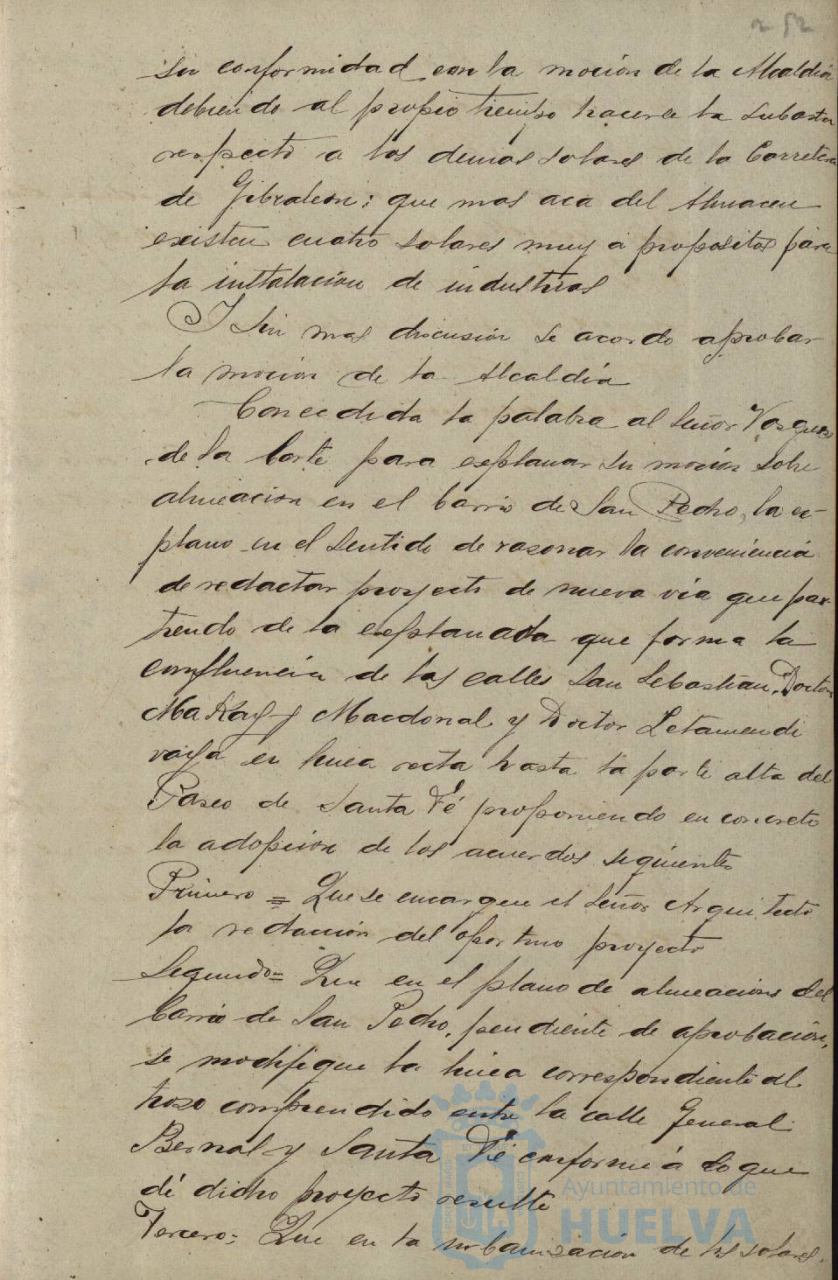 252
su conformidad con la moción de la Alcaldia
debiendo al propio tiempo hacerse la subasta
respecto a los demas solares de la Carretera
de Gibraleon; que mas aca del Almacen
existen cuatro solares muy a propositos para
la instalación de industrias
Y sin mas discusión se acordo aprobar
la mocion de la Alcaldia
Concedida la palabra al Señor Vasquez
de la Corte para explanar su moción sobre
alineacion en el barrio de San Pedro, la ex-
plano en el sentido de rasonar la conveniencia
de redactar proyecto de nueva via que par-
tiendo de la explanada que forma la
confluencia de las calles San Sebastian, Doctor
Makay y Macdonal y Doctor Letamendi
vaya en linea recta hasta la parte alta del
Paseo de Santa Fé proponiendo en concreto
la adopcion de los acuerdos siguientes
Primero = Que se encargue el Señor Arquitecto
la redacción del oportuno proyecto
Segundo = Que en el plano de alineacions del
barrio de San Pedro, pendiente de aprobación,
se modifique la linea correspondiente al
troso comprendido entre la calle General
Bernal y Santa Fé conforme á lo que
de dicho proyecto resulte
Tercero = Que en la urbanización de los solares
Ayuntamiento de
HUELVA